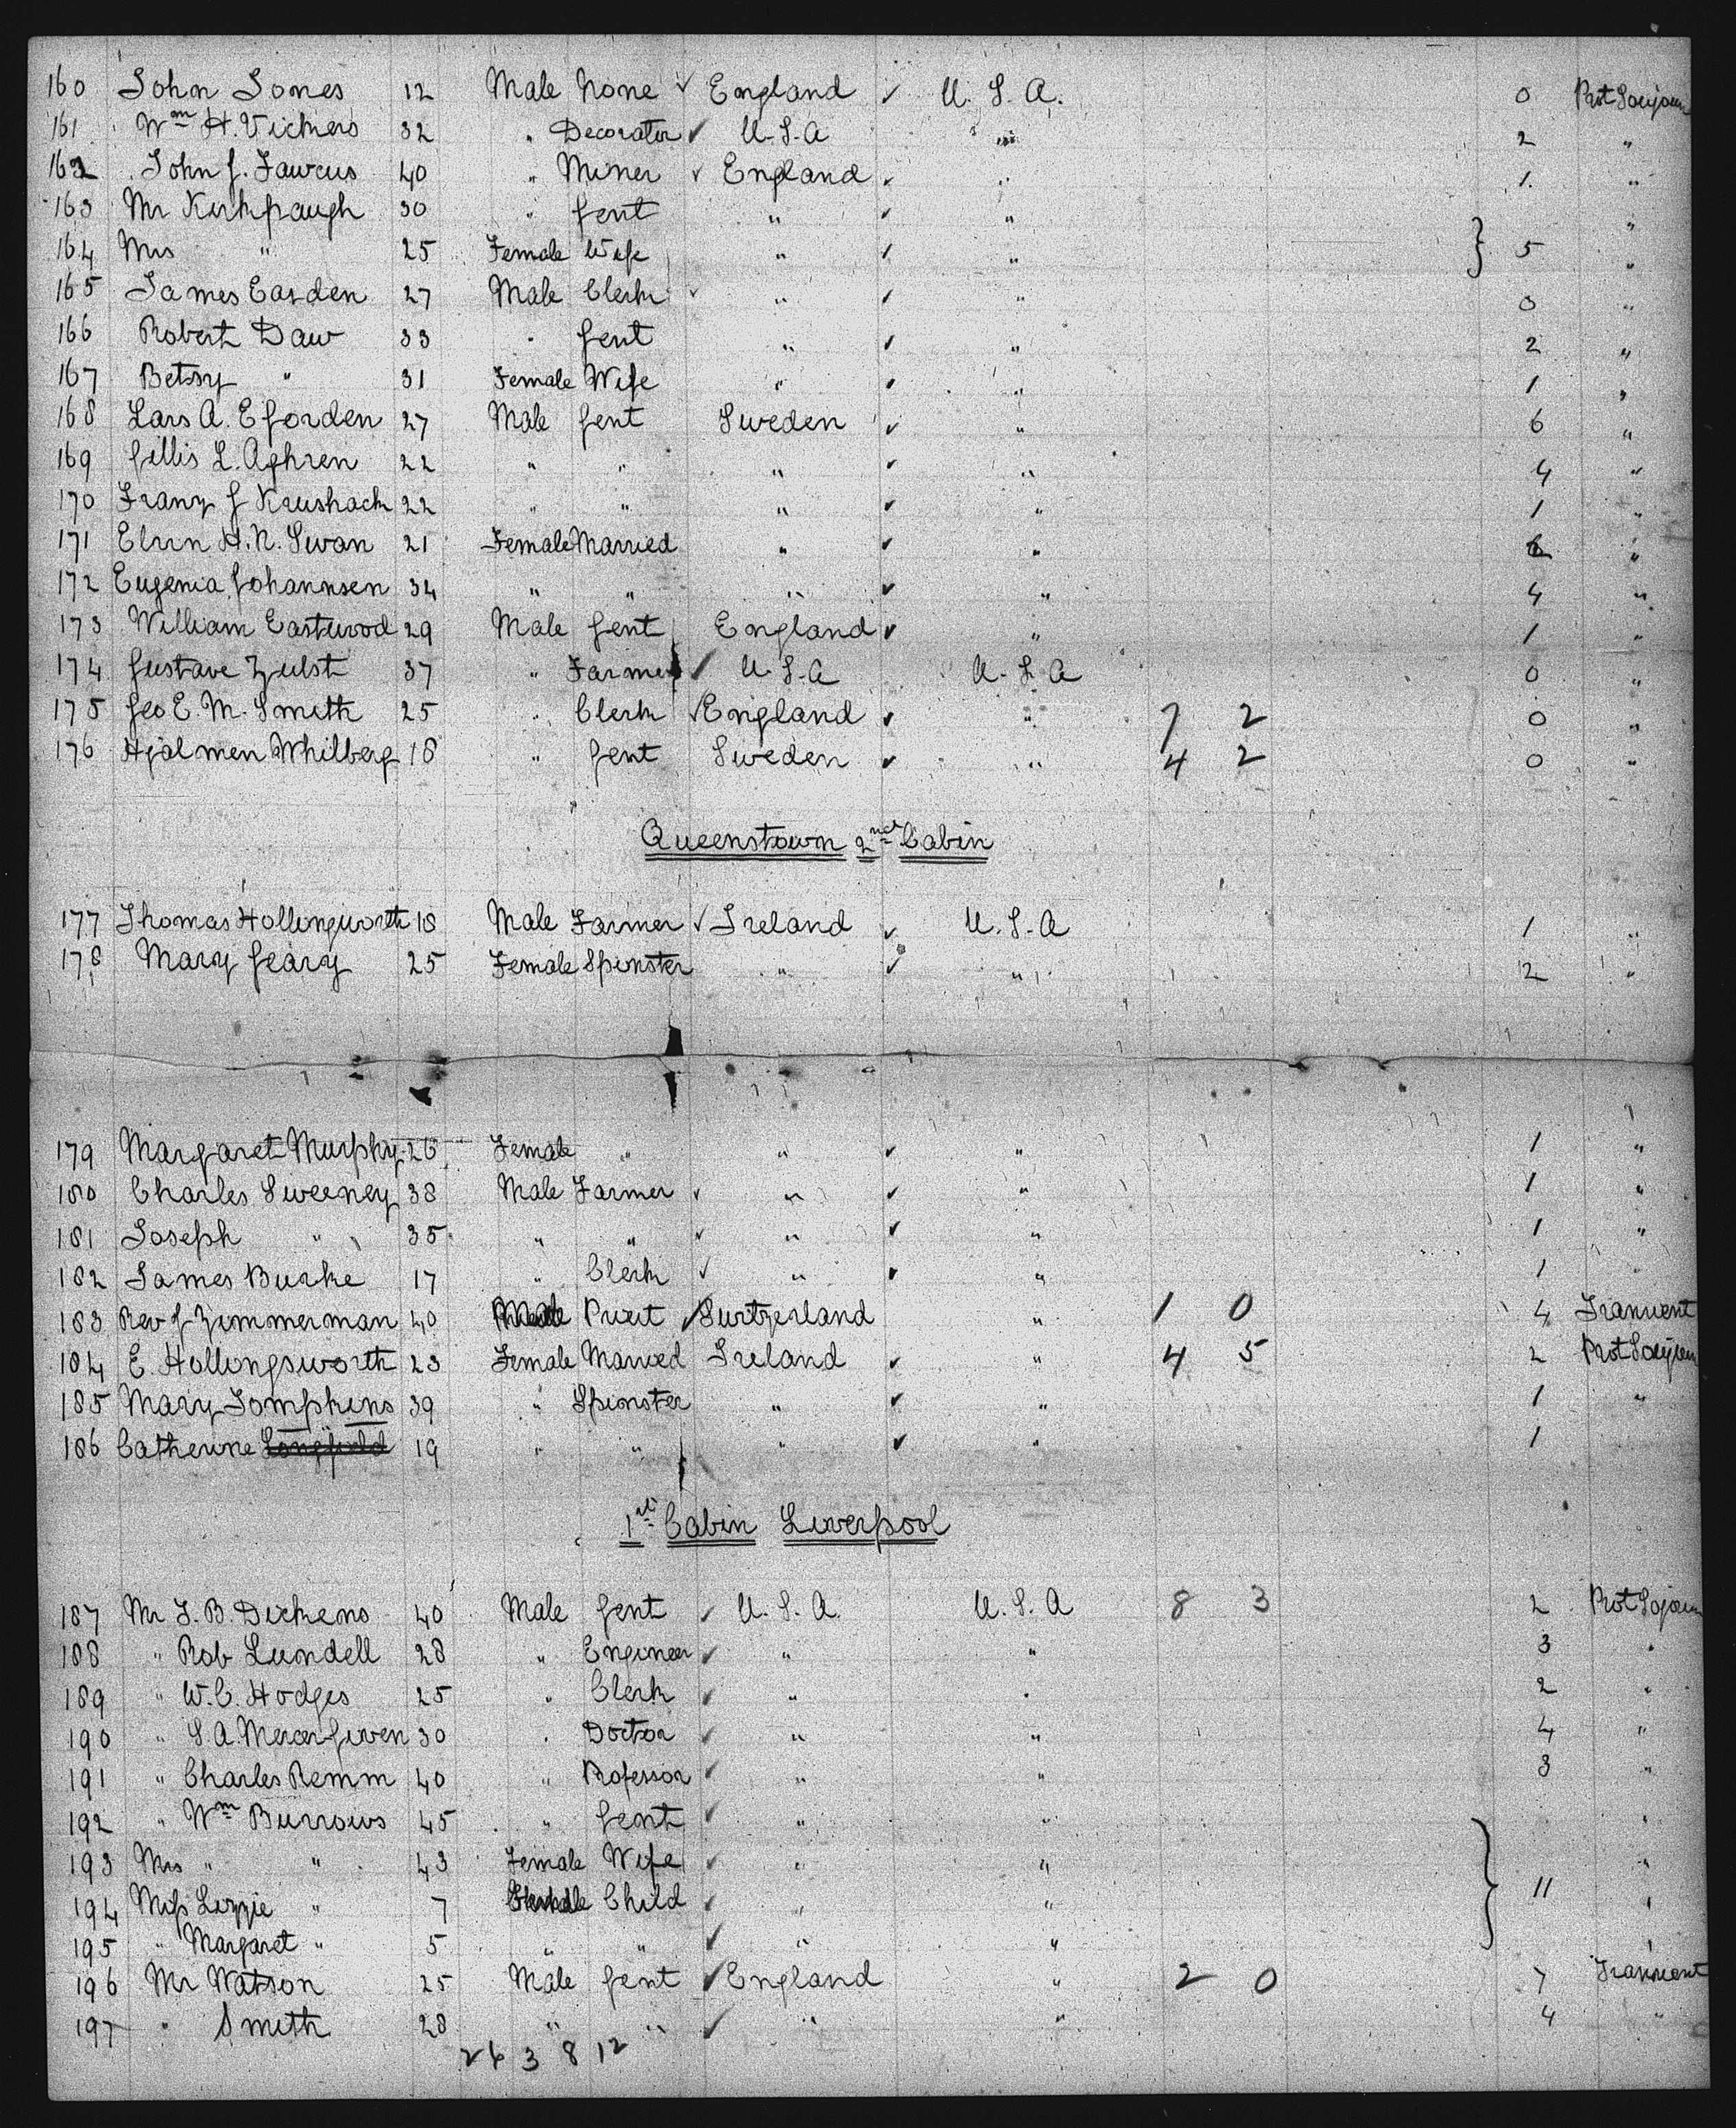 160 John Jones 12 Male None ✓ England ✓ U.S.A. 0 Prot Sojourn
161 Wm H. Vickers 32 " Decorator ✓ U.S.A " 2 "
162 John J. Fawcus 40 " Miner ✓ England ✓ " 1 "
163 Mr 30 " Gent " ✓ " "
164 Mrs " 25 Female Wife " ✓ " } 5 "
165 James Easden 27 Male Clerk ✓ " ✓ " 0 "
166 Robert Daw 33 " Gent " ✓ " 2 "
167 Betsy " 31 Female Wife " ✓ " 1 "
168 Lars A. 27 Male Gent Sweden ✓ " 6 "
169 Gillis L. Aghren 22 " " " ✓ " 4 "
170 Franz J 22 " " " ✓ " 1 "
171 H.N. Swan 21 Female Married " ✓ " "
172 Eugenia Johannsen 34 " " " ✓ " 4 "
173 William Eastwood 29 Male Gent England ✓ " 1 "
174 Gustave Zulst 37 " Farmer ✓ U.S.A U.S.A 0 "
175 Geo E. M. Smith 25 " Clerk ✓ England ✓ " 7 2 0 "
176 Hjalmen Whilberg 18 " Gent Sweden ✓ " 4 2 0 "
Queenstown 2nd Cabin
177 Thomas Hollingworth 18 Male Farmer ✓ Ireland ✓ U.S.A 1 "
178 Mary Geary 25 Female Spinster " ✓ " 2 "
179 Margaret Murphy 26 Female " " ✓ " 1 "
180 Charles Sweeney 38 Male Farmer ✓ " ✓ " 1 "
181 Joseph " 35 " " ✓ " ✓ " 1 "
182 James Burke 17 " Clerk ✓ " ✓ " 1 "
183 Rev J Zimmerman 40 Male Priest ✓ Switzerland " 1 0 4 Transient
184 E. Hollingsworth 23 Female Married Ireland ✓ " 4 5 2 Prot Sojourn
185 Mary Tomphins 39 " Spinster " ✓ " 1 "
186 Catherine Longfield 19 " " " ✓ " 1
1st Cabin Liverpool
187 Mr T. B. Dickens 40 Male Gent ✓ U.S.A. U.S.A 8 3 2 Prot Sojourn
188 " Rob Lundell 28 " Engineer ✓ " " 3 "
189 " W. C. Hodges 25 " Clerk ✓ " " 2 "
190 " S. A. Mercer Given 30 " Doctor ✓ " " 4 "
191 " Charles Remm 40 " Professor ✓ " " 3 "
192 " Wm Burrows 45 " Gent ✓ " " "
193 Mrs " " 43 Female Wife ✓ " " "
194 Miss Lizzie " 7 Female Child ✓ " " } 11 "
195 " Margaret " 5 " " ✓ " " "
196 Mr Watson 25 Male Gent ✓ England " 2 0 7 Transient
197 " Smith 28 " " ✓ " " 4 "
26 3 8 12